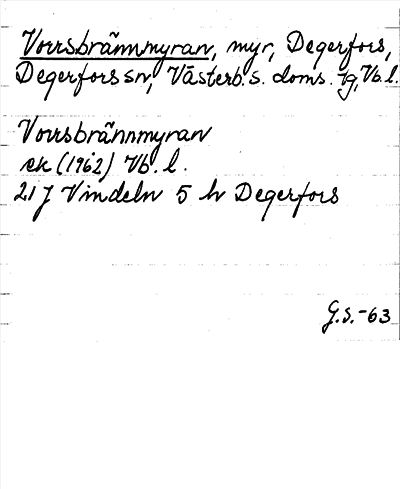 Vorrsbrännmyran, myr, Degerfors,
Degerfors sn, Västerb. s. doms. jg, Vb. l.
Vorrsbrännmyran
ek (1962) Vb. l.
21 J Vindeln 5 h Degerfors
G.S.-63